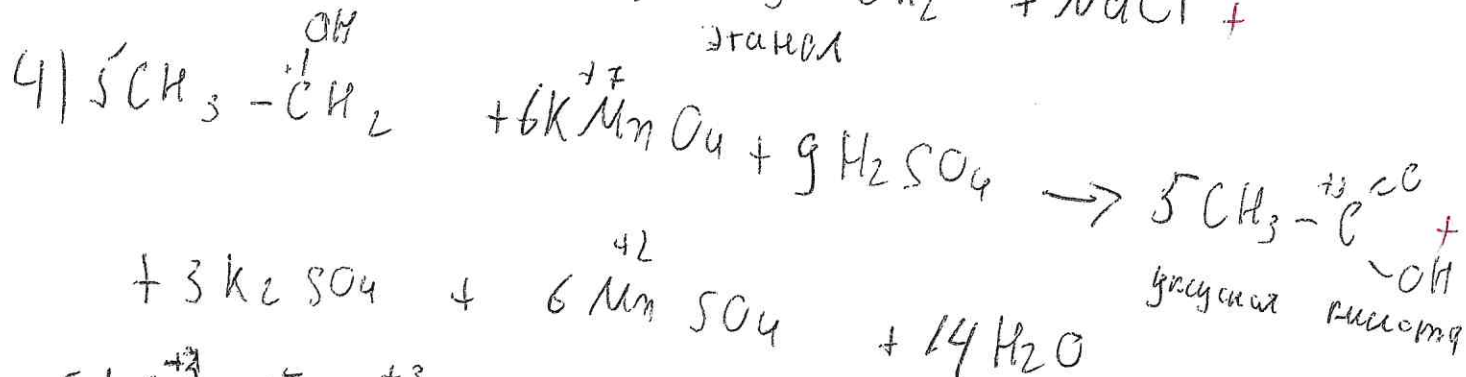 + NaCl +
этанол
OH
4) 5CH3 - CH2 + 6KMnO4 + 9H2SO4 → 5CH3 - C =O +
+7
+3
-OH
уксусная кислота
+2
+ 3K2SO4 + 6MnSO4 + 14H2O
+3